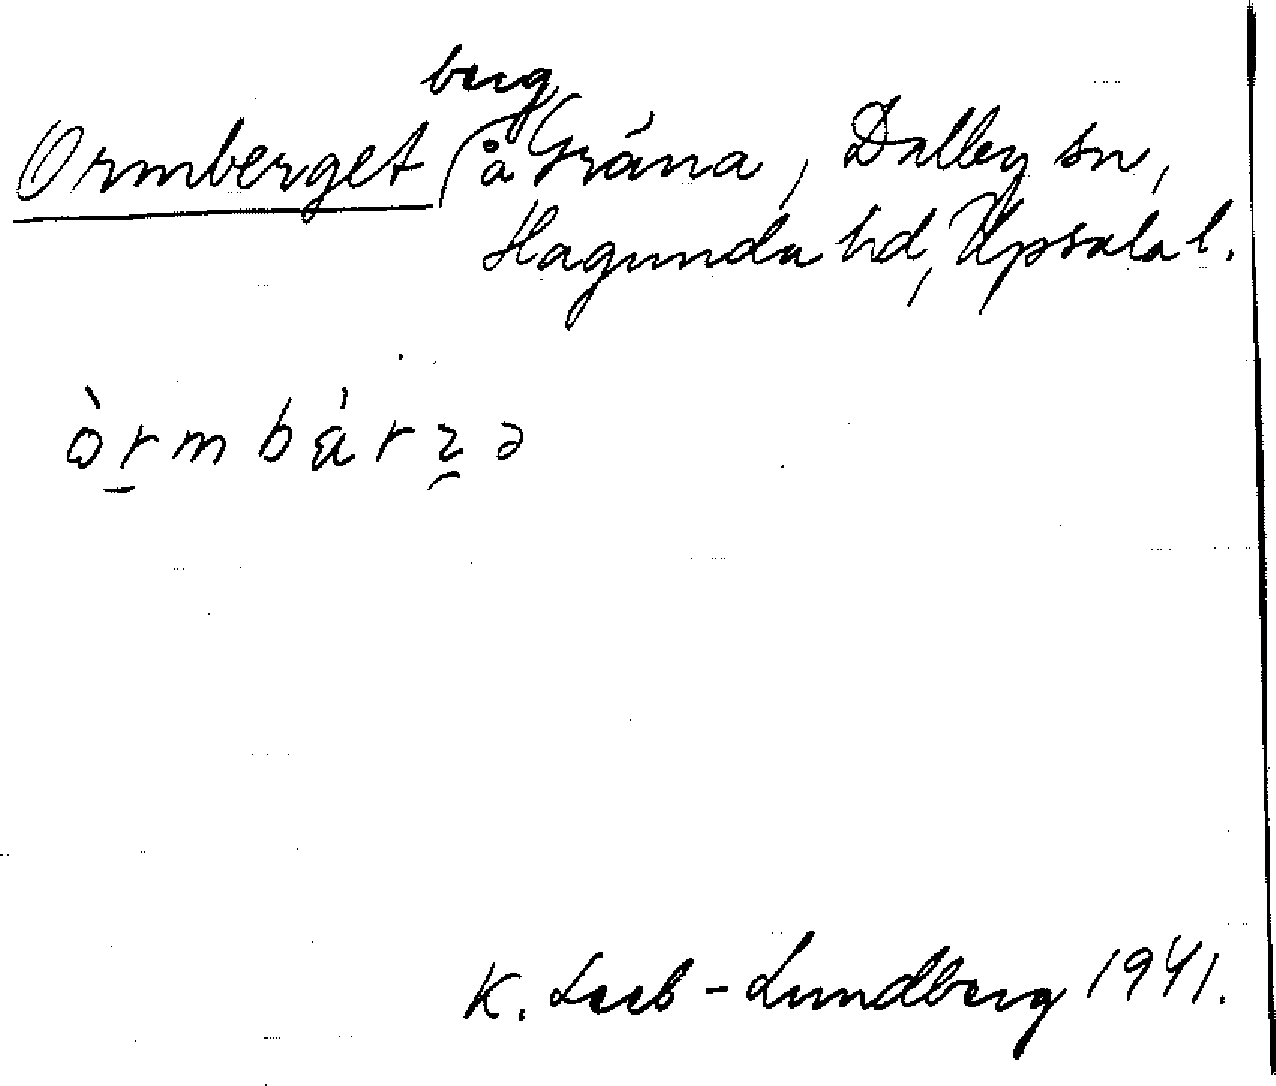 Ormberget berg å Gräna, Dalby sn,
Hagunda hd, Upsala l.
òrmbárʐə
K. Leeb-Lundberg 1941.